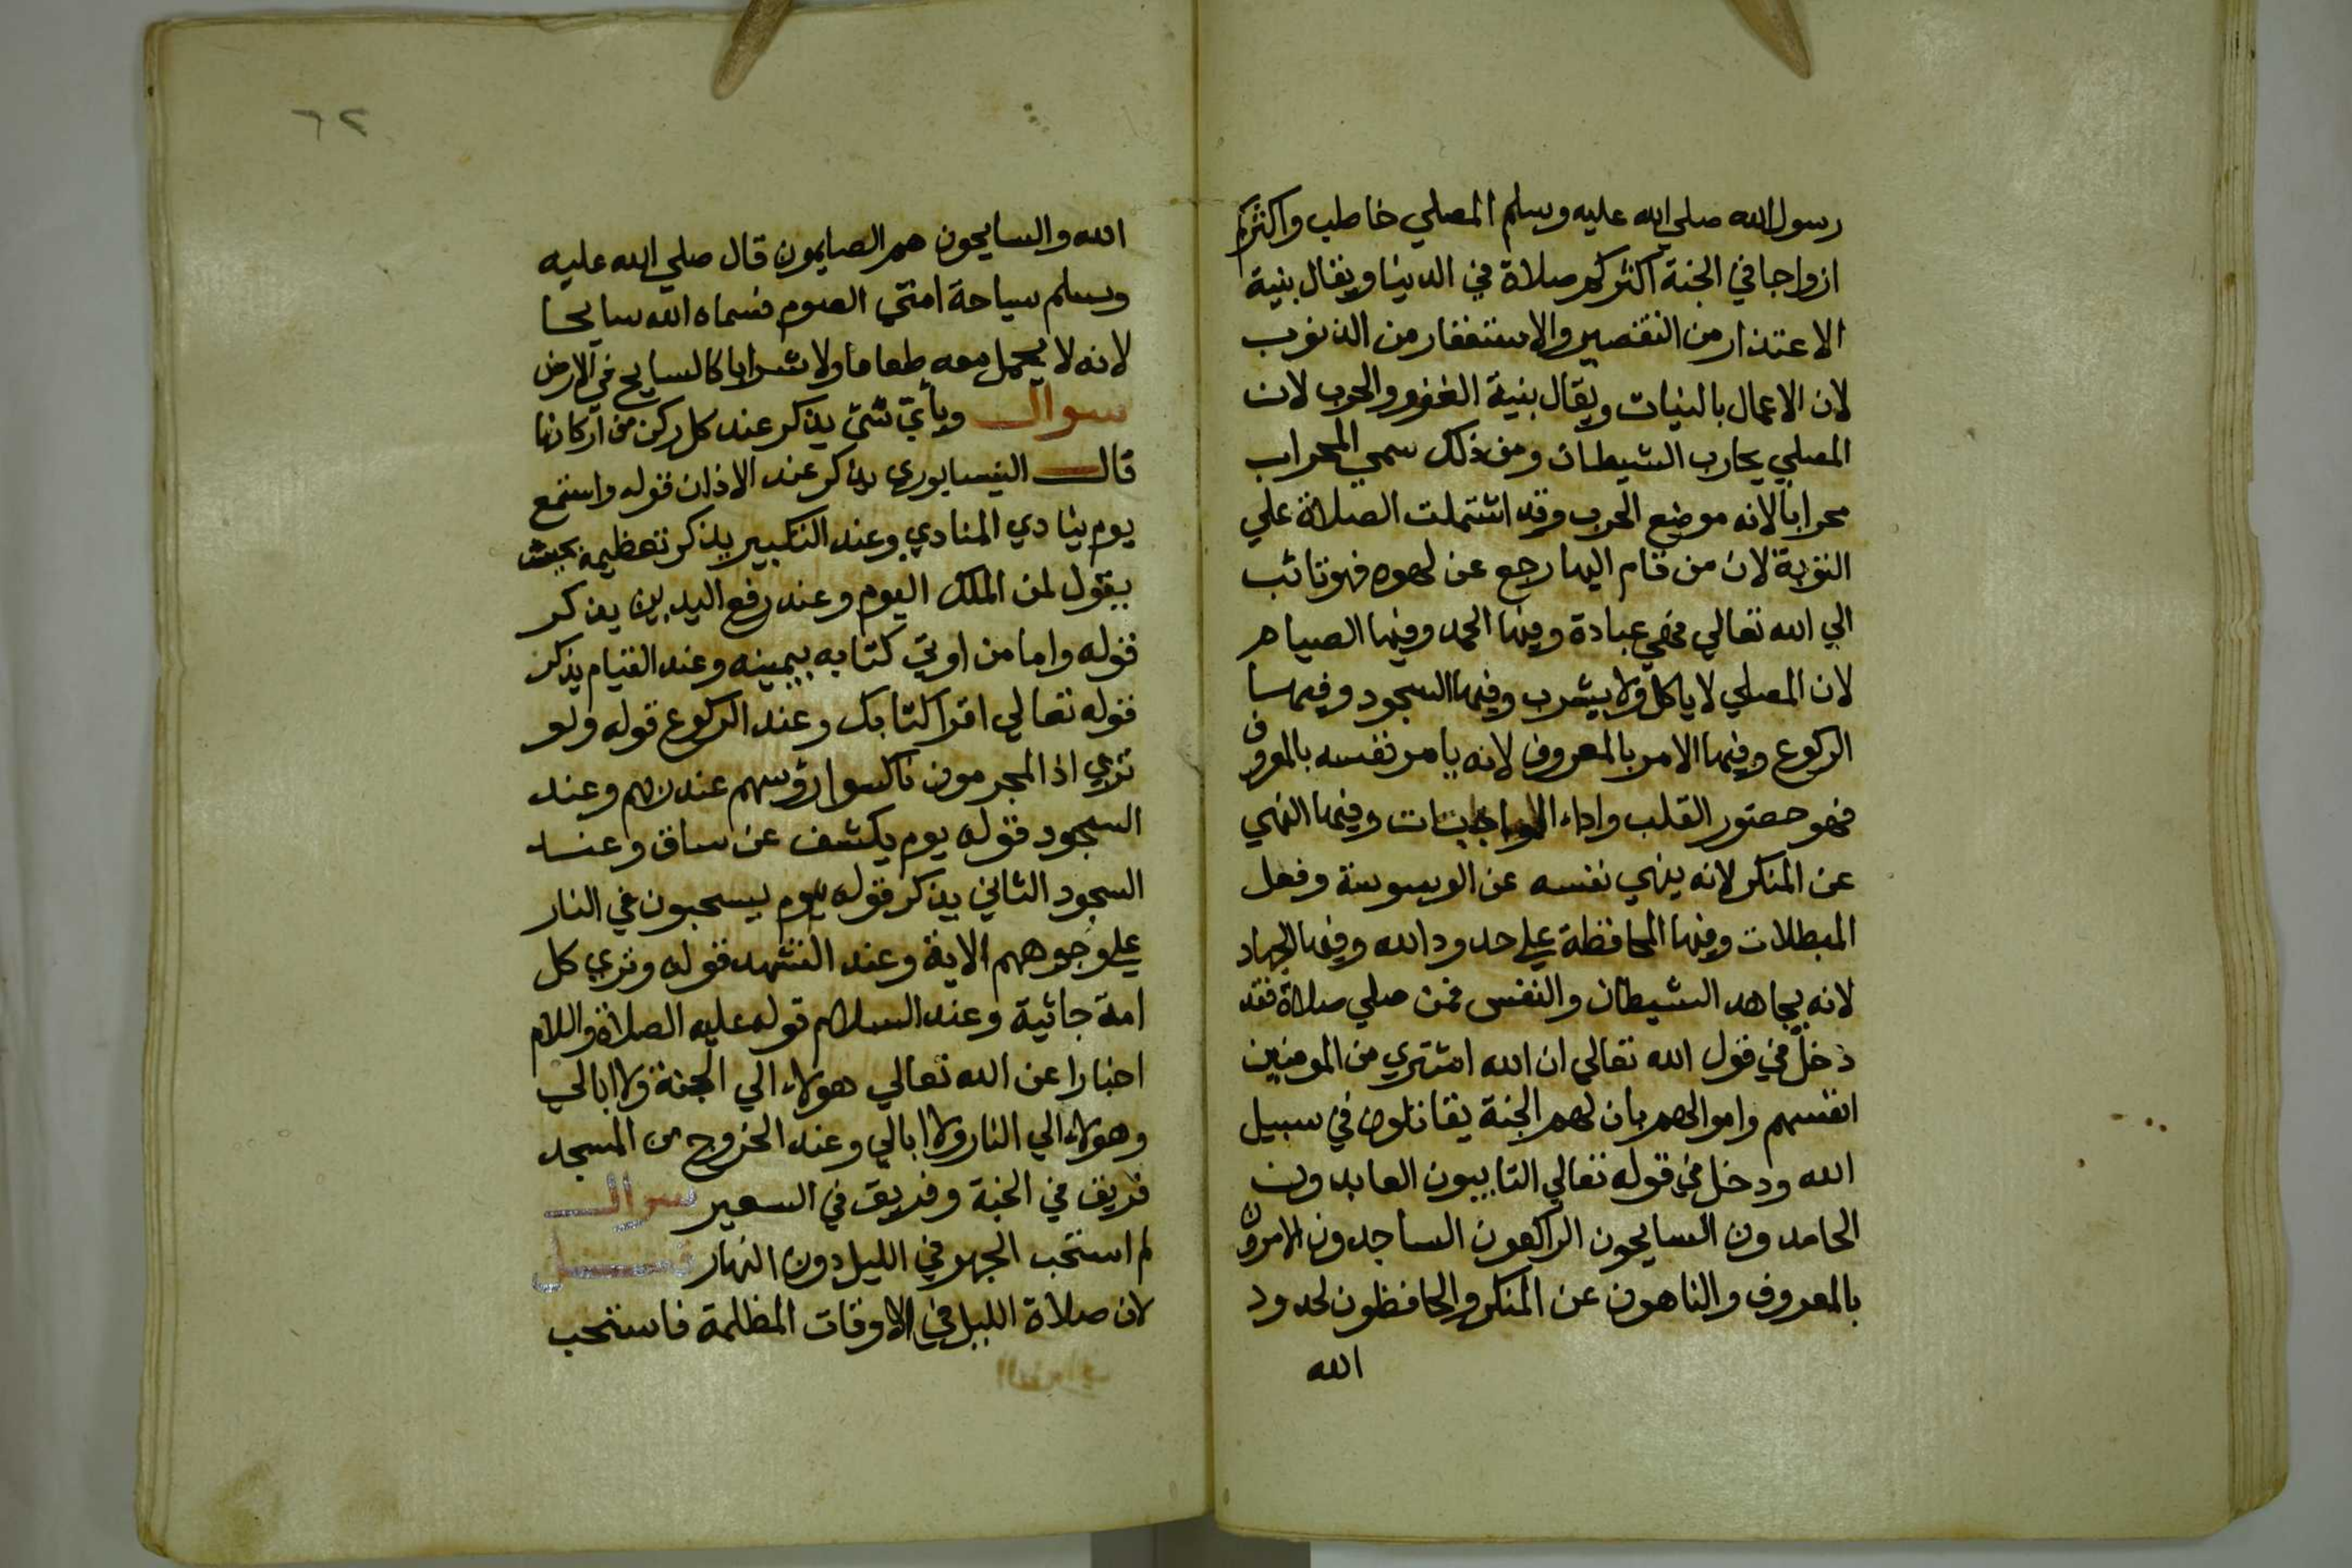 رسول الله صلي الله عليه وسلم المصلي خاطب واكثركم
ازواجا في الجنة اكثركم صلاة في الدينا ويقال بنية
الاعتذار من التقصير والاستغفار من الذنوب
لان الاعمال بالنيات ويقال بنية الغزو والحرب لان
المصلي يحارب الشيطان ومن ذلك سمي المحراب
محرابا لانه موضع الحرب وقد اشتملت الصلاة علي
التوبة لان من قام اليها رجع عن لهوه فهو تائب
الي الله تعالي فهي عبادة وفيها الحمد وفيها الصيام
لان المصلي لا ياكل ولا يشرب وفيها السجود وفيها
الركوع وفيها الامر بالمعروف لانه يامر نفسه بالمعروف
فهو حضور القلب واداء الواجبات وفيها النهي
عن المنكر لانه ينهي نفسه عن الوسوسة وفعل
المبطلات وفيها المحافظة علي حدود الله وفيها الجهاد
لانه يجاهد الشيطان والنفس فمن صلي صلاة فقد
دخل في قول الله تعالي ان الله اشتري من المومنين
انفسهم واموالهم بان لهم الجنة يقاتلون في سبيل
الله ودخل في قوله تعالي التايبون العابدون
الحامدون السايحون الراكعون الساجدون الامرون
بالمعروف والناهون عن المنكر والحافظون لحدود
الله
٦٢
الله والسايحون هم الصايمون قال صلي الله عليه
وسلم سياحة امتي الصوم فسماه الله سايحا
لانه لا يحمل معه طعاما ولا شرابا كالسايح في الارض
سوال وباي شي يذكر عند كل ركن من اركانها
قال النيسابوري يذكر عند الاذان قوله واستمع
يوم ينادي المنادي وعند التكبير يذكر تعظيمه بحيث
يقول لمن الملك اليوم وعند رفع اليدين يذكر
قوله واما من اوتي كتابه بيمينه وعند القيام يذكر
قوله تعالي اقرا كتابك وعند الركوع قوله ولو
تري اذ المجرمون ناكسوا رؤسهم عند ربهم وعند
السجود قوله يوم يكشف عن ساق وعند
السجود الثاني يذكر قوله يوم يسحبون في النار
علي وجوههم الاية وعند التشهد قوله وتري كل
امة جاثية وعند السلام قوله عليه الصلاة واللام
اخبارا عن الله تعالي هولاء الي الجنة ولا ابالي
وهولاء الي النار ولا ابالي وعند الخروج من المسجد
فريق في الجنة وفريق في السعير سوال
لم استحب الجهر في الليل دون النهار قيل
لان صلاة الليل في الاوقات المظلمة فاستحب